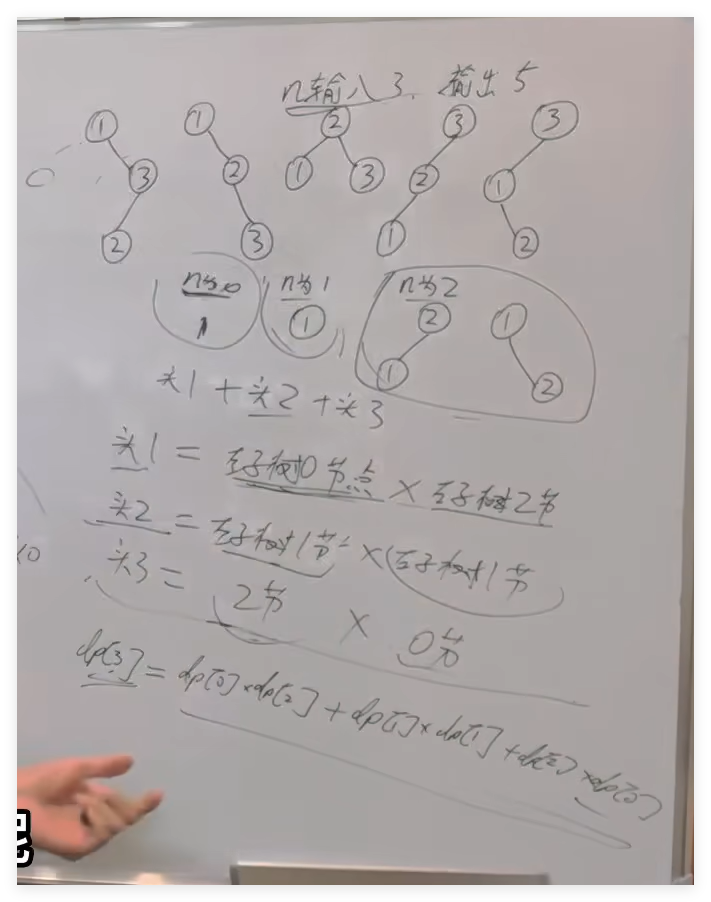 n输入3. 输出5
1 1 2 3 3
3 2 1 3 2 1
2 3 1 2
n为0 n为1 n为2
1 1 2 1
1 2
头1+头2+头3
头1 = 左子树0节点 × 右子树2节
头2 = 左子树1节 × 右子树1节
头3 = 2节 × 0节
dp[3] = dp[0]×dp[2] + dp[1]×dp[1] + dp[2]×dp[0]